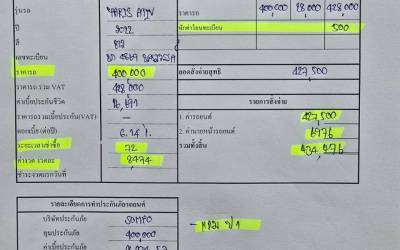 รุ่นรถ YARIS ATIV
ราคารถ 400,000 28,000 428,000
ปี 2022
หักค่าโอนทะเบียน 500
สี ขาว
เลขทะเบียน
ราคารถ 400 000
ยอดคงจ่ายสุทธิ 427,500
ราคารถ รวม VAT 428,000
ค่าเบี้ยประกันชีวิต
รายการสั่งจ่าย
ราคารถรวมเบี้ยประกัน(VAT)
1. ค่ารถยนต์ 427,500
ดอกเบี้ย (ต่อปี) 6.14 %
2. ค่านายหน้ารถยนต์ 6976
ระยะเวลาเช่าซื้อ 72
รวมทั้งสิ้น 434,476
ค่างวด งวดละ 8474
ชำระงวดแรกวันที่
รายละเอียดการทำประกันภัยรถยนต์
บริษัทประกันภัย SOMPO
ทุนประกันภัย 400,000
ค่าเบี้ยประกันภัย